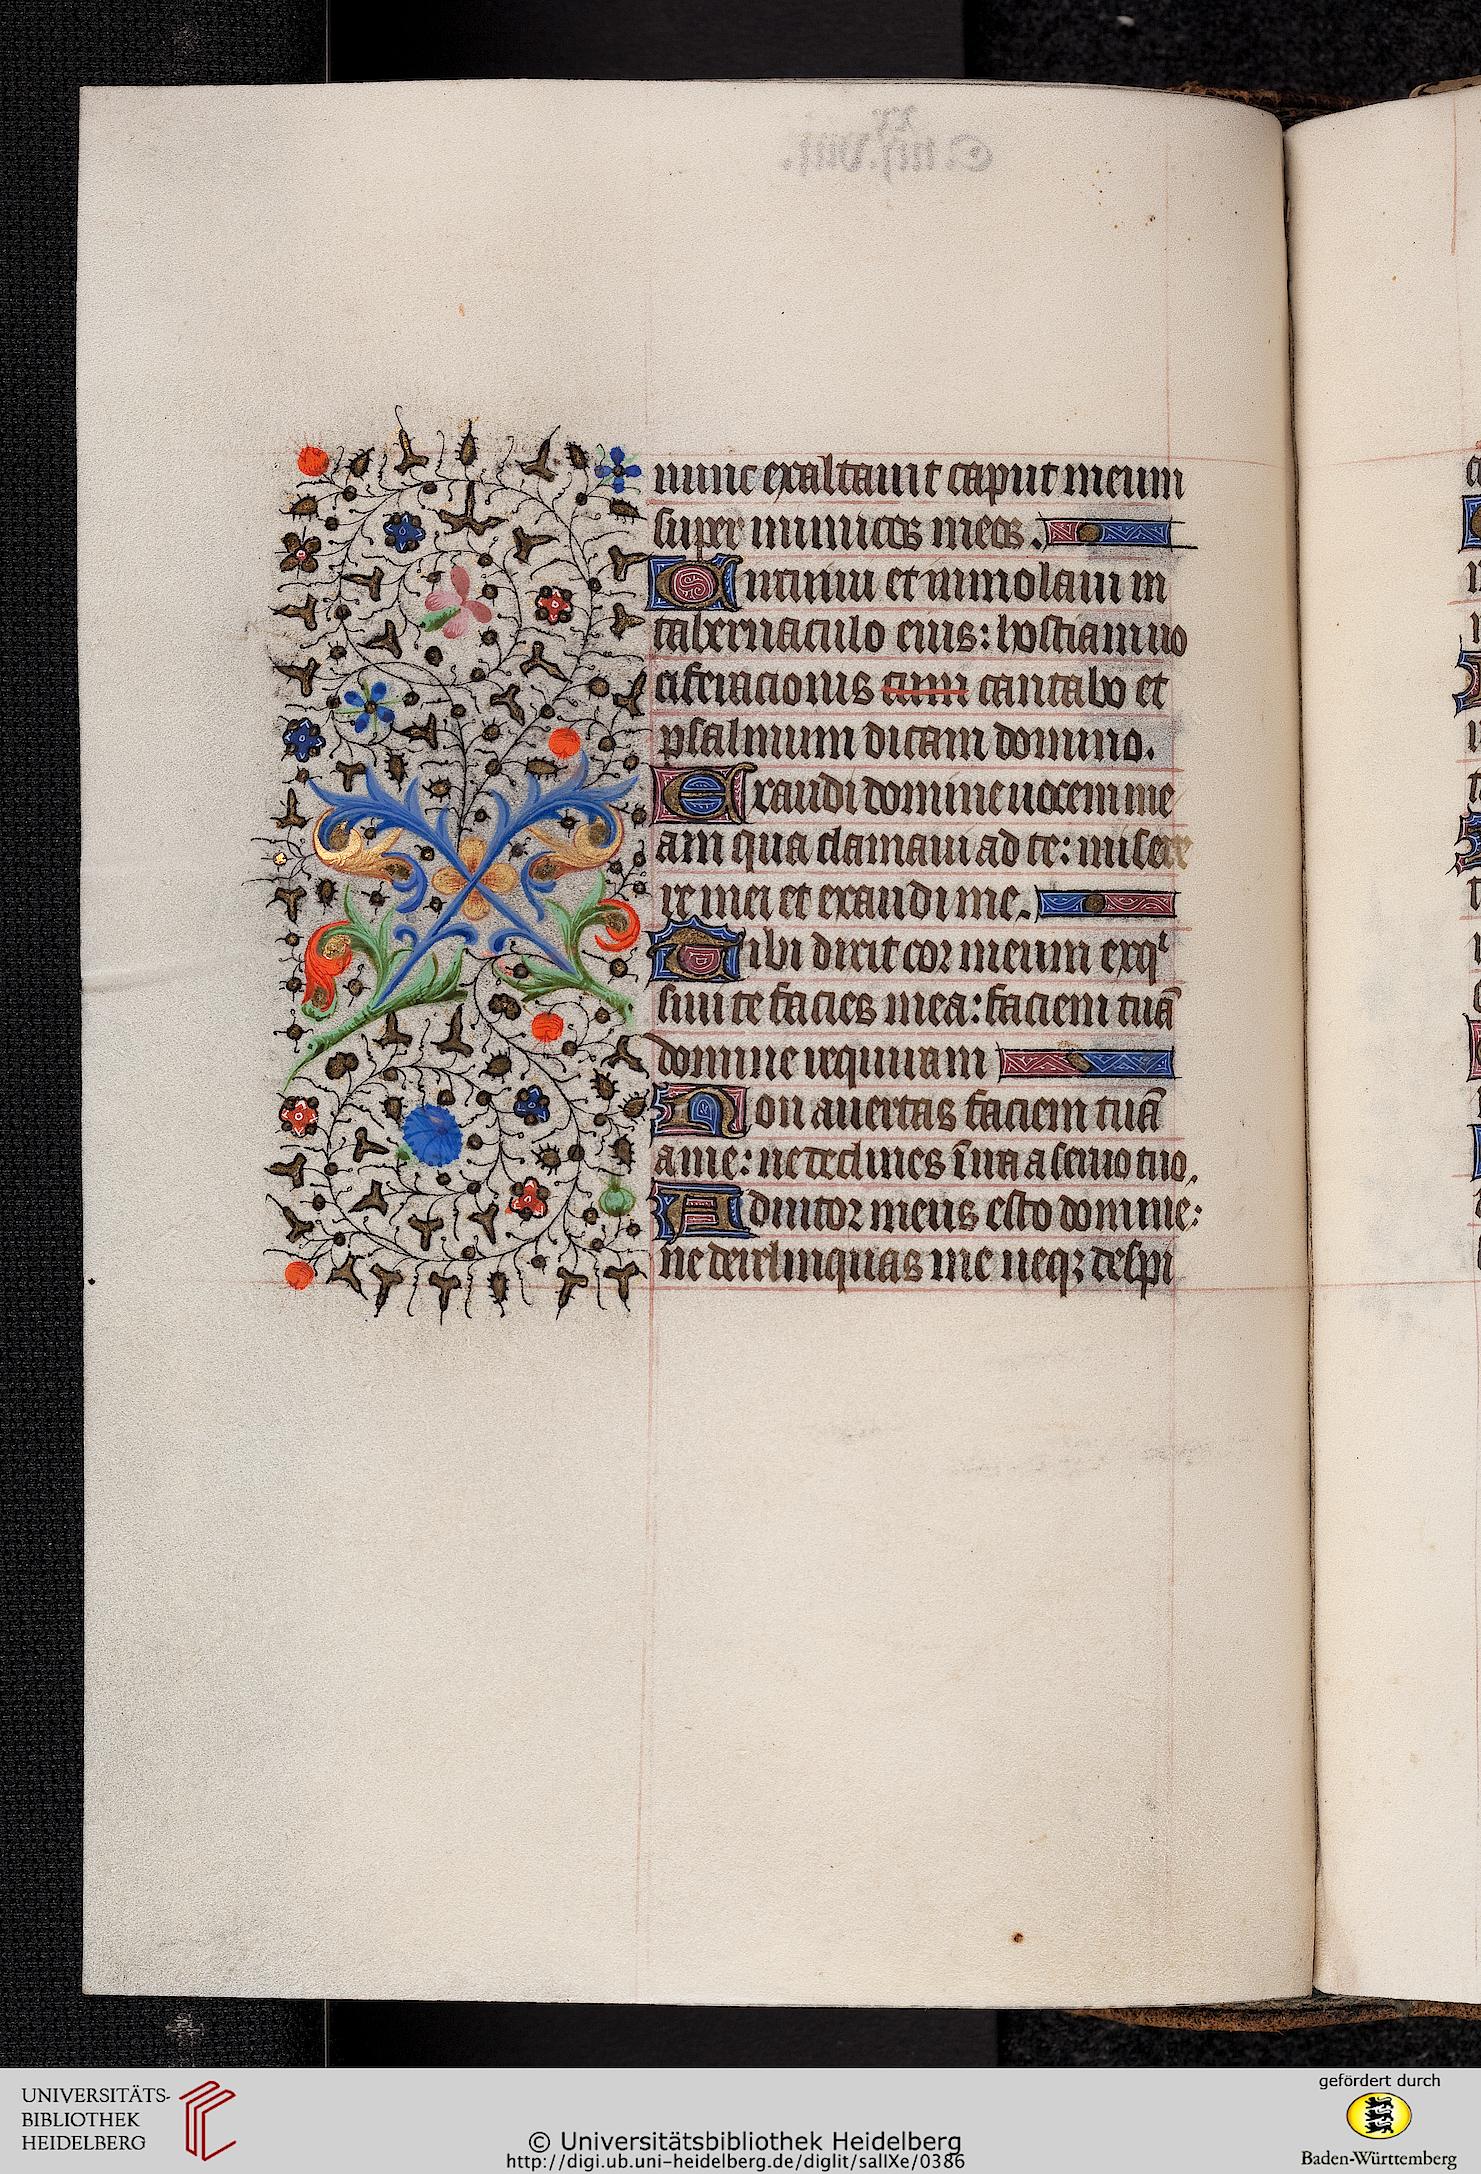 nunc exaltauit caput meum
super inimicos meos.
Circuiui et immolaui in
tabernaculo eius: hostiam uo
ciferacionis cum cantabo et
psalmum dicam domino.
Exaudi domine uocem me
am qua clamaui ad te: misere
re mei et exaudi me.
Tibi dixit cor meum exqⁱ
siuit te facies mea: faciem tuā
domine requiram
Non auertas faciem tuā
a me: ne declines ī ira a seruo tuo.
Adiutor meus esto domine:
ne derelinquas me neqꝫ despi
UNIVERSITÄTS-
BIBLIOTHEK
HEIDELBERG
© Universitätsbibliothek Heidelberg
http://digi.ub.uni-heidelberg.de/diglit/salIXe/0386
gefördert durch
Baden-Württemberg